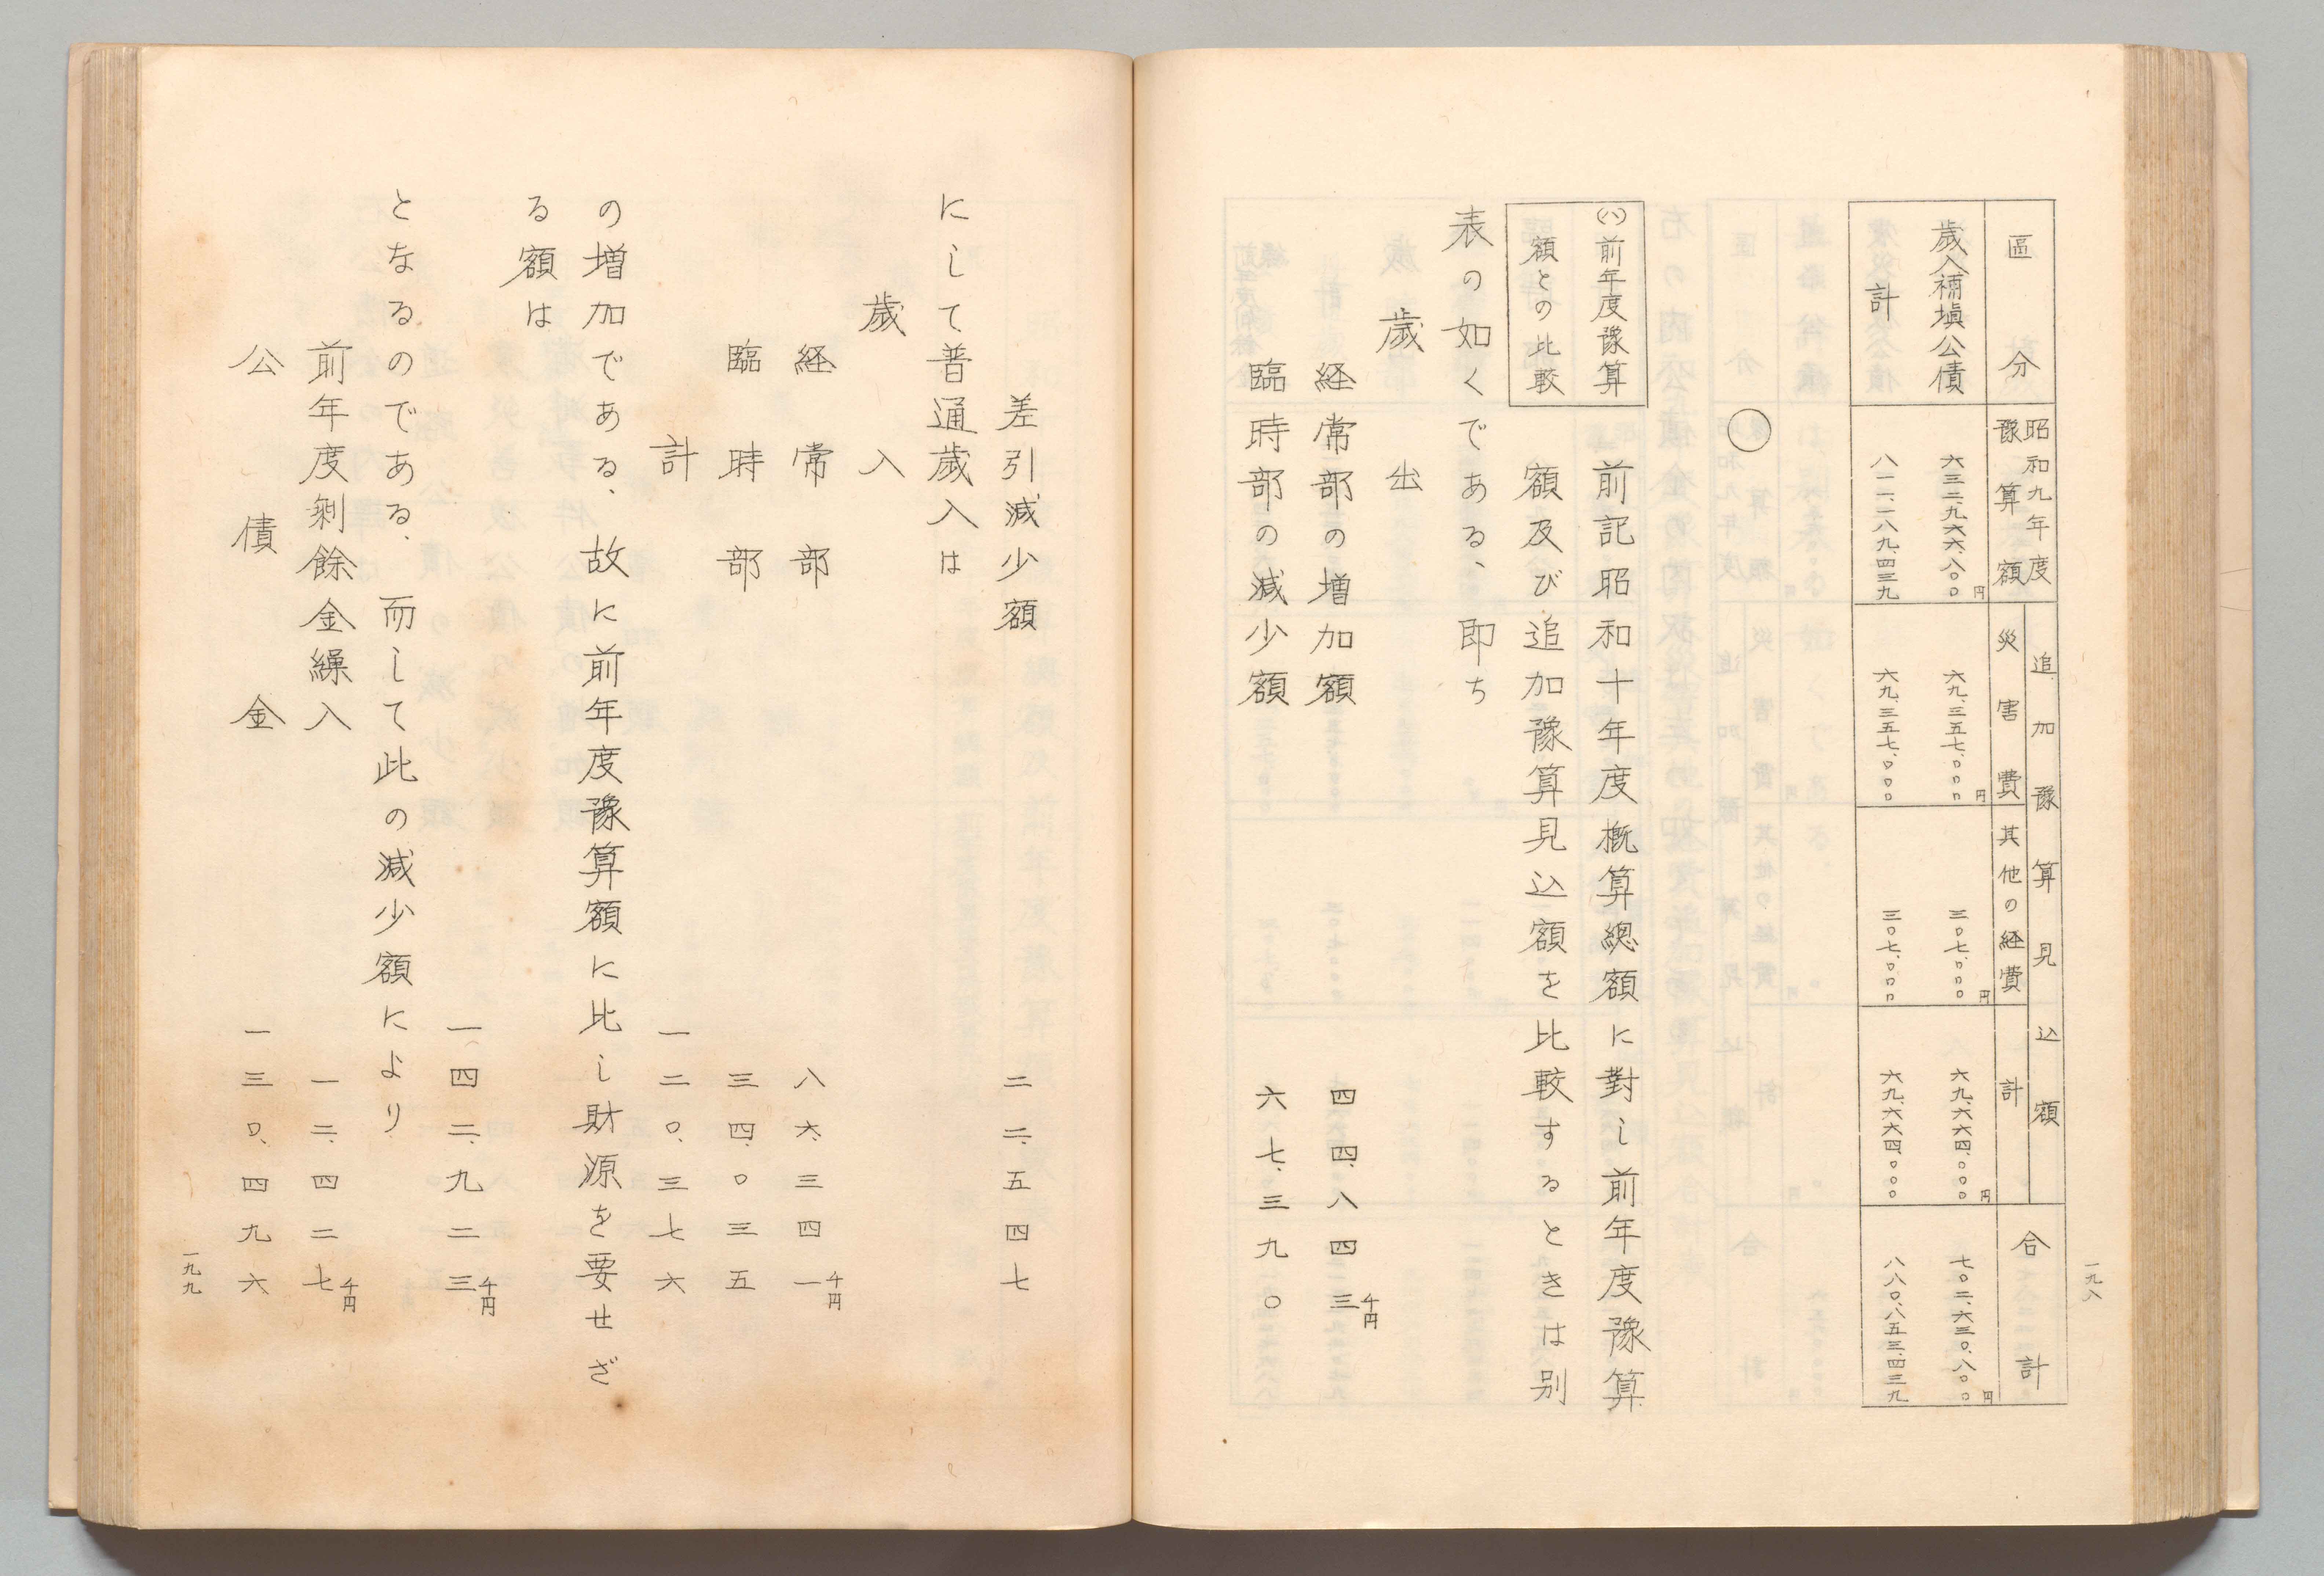 一九八
區分
昭和九年度豫算額
追加豫算見込額
災害費
其他の経費
計
合計
歳入補塡公債 六三二、九六六、八〇〇円 六九、三五七、〇〇〇円 三〇七、〇〇〇円 六九、六六四、〇〇〇円 七〇二、六三〇、八〇〇円
計 八一一、一八九、四三九 六九、三五七、〇〇〇 三〇七、〇〇〇 六九、六六四、〇〇〇 八八〇、八五三、四三九
〇
(ハ)前年度豫算
額との比較
前記昭和十年度概算總額に對し前年度豫算
額及び追加豫算見込額を比較するときは別
表の如くである、即ち
歳出
経常部の増加額 四四、八四三千円
臨時部の減少額 六七、三九〇
差引減少額 二二、五四七
にして普通歳入は
歳入
経常部 八六、三四一千円
臨時部 三四、〇三五
計 一二〇、三七六
の増加である、故に前年度豫算額に比し財源を要せざ
る額は
一四二、九二三千円
となるのである、而して此の減少額により
前年度剰餘金繰入 一二、四二七千円
公債金 一三〇、四九六
一九九